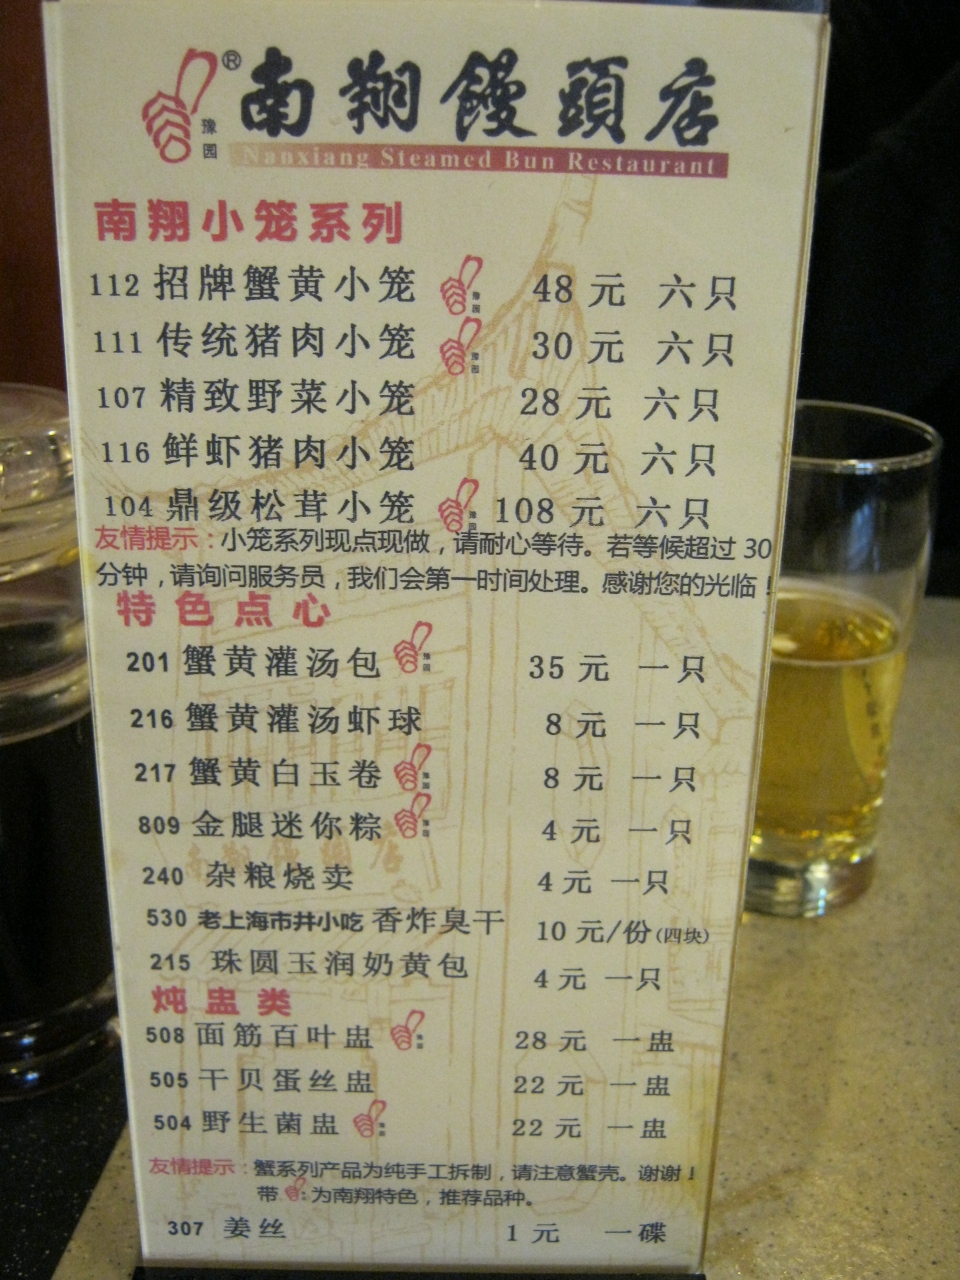 南翔饅頭店
®
豫园
Nanxiang Steamed Bun Restaurant
南翔小笼系列
112 招牌蟹黄小笼 豫园 48 元 六只
111 传统猪肉小笼 豫园 30 元 六只
107 精致野菜小笼 28 元 六只
116 鲜虾猪肉小笼 40 元 六只
104 鼎级松茸小笼 豫园 108 元 六只
友情提示：小笼系列现点现做，请耐心等待。若等候超过 30
分钟，请询问服务员，我们会第一时间处理。感谢您的光临！
特色点心
201 蟹黄灌汤包 豫园 35 元 一只
216 蟹黄灌汤虾球 8 元 一只
217 蟹黄白玉卷 豫园 8 元 一只
809 金腿迷你粽 豫园 4 元 一只
240 杂粮烧卖 4 元 一只
530 老上海市井小吃 香炸臭干 10 元/份(四块)
215 珠圆玉润奶黄包 4 元 一只
炖盅类
508 面筋百叶盅 豫园 28 元 一盅
505 干贝蛋丝盅 22 元 一盅
504 野生菌盅 豫园 22 元 一盅
友情提示：蟹系列产品为纯手工拆制，请注意蟹壳。谢谢！
带 ：为南翔特色，推荐品种。
307 姜丝 1 元 一碟